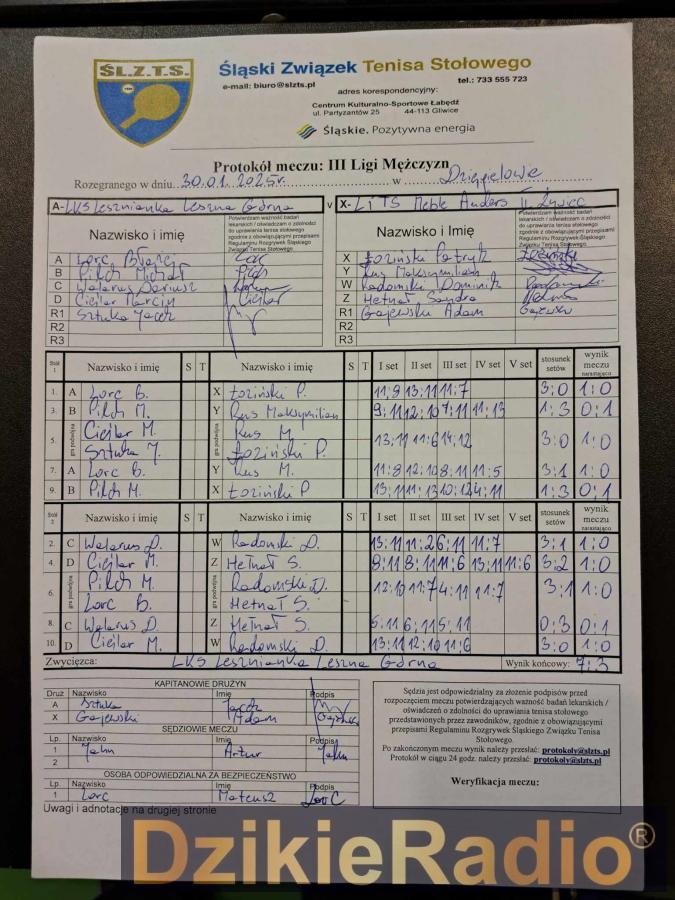 ŚL.Z.T.S.
Śląski Związek Tenisa Stołowego
e-mail: biuro@slzts.pl tel.: 733 555 723
adres korespondencyjny:
Centrum Kulturalno-Sportowe Łabędź
ul. Partyzantów 25 44-113 Gliwice
Śląskie. Pozytywna energia
Protokół meczu: III Ligi Mężczyzn
Rozegranego w dniu 30.01.2025r. w Dzięgielowie
A- LKS Lesznianka Leszna Górna v X- LiTS Meble Anders II Żywiec
Nazwisko i imię Potwierdzam ważność badań lekarskich / oświadczam o zdolności do uprawiania tenisa stołowego zgodnie z obowiązującymi przepisami Regulaminu Rozgrywek Śląskiego Związku Tenisa Stołowego Nazwisko i imię Potwierdzam ważność badań lekarskich / oświadczam o zdolności do uprawiania tenisa stołowego zgodnie z obowiązującymi przepisami Regulaminu Rozgrywek Śląskiego Związku Tenisa Stołowego
A Lorc Błażej X Łoziński Patryk
B Pilch Michał Y Kus Maksymilian
C Walarus Dariusz W Radomski Dominik
D Cieślar Marcin Cieślar Z Hetnał Sandra
R1 Sztuka Jacek R1 Gajewski Adam
R2 R2
R3 R3
Stół 1 Nazwisko i imię S T Nazwisko i imię S T I set II set III set IV set V set stosunek setów wynik meczu narastająco
1. A Lorc B. X Łoziński P. 11:9 13:11 11:7 3:0 1:0
3. B Pilch M. Y Kus Maksymilian 9:11 12:10 7:11 11:13 1:3 0:1
5. gra podwójna Cieślar M. Kus M. 13:11 11:6 14:12 3:0 1:0
Sztuka J. Łoziński P.
7. A Lorc B. Y Kus M. 11:8 12:10 8:11 11:5 3:1 1:0
9. B Pilch M. X Łoziński P 13:11 11:13 10:12 4:11 1:3 0:1
Stół 2 Nazwisko i imię S T Nazwisko i imię S T I set II set III set IV set V set stosunek setów wynik meczu narastająco
2. C Walarus D. W Radomski D. 13:11 11:2 6:11 11:7 3:1 1:0
4. D Cieślar M. Z Hetnał S. 9:11 8:11 11:6 13:11 11:6 3:2 1:0
6. gra podwójna Pilch M. Radomski D. 12:10 11:7 4:11 11:7 3:1 1:0
Lorc B. Hetnał S.
8. C Walarus D. Z Hetnał S. 5:11 6:11 5:11 0:3 0:1
10. D Cieślar M. W Radomski D. 13:11 12:10 11:6 3:0 1:0
Zwycięzca: LKS Lesznianka Leszna Górna Wynik końcowy: 7:3
KAPITANOWIE DRUŻYN
Druż Nazwisko Imię Podpis
A Sztuka Jacek
X Gajewski Adam
SĘDZIOWIE MECZU
Lp. Nazwisko Imię Podpis
1 Jahn Artur Jahn
2
OSOBA ODPOWIEDZIALNA ZA BEZPIECZEŃSTWO
Lp. Nazwisko Imię Podpis
1 Lorc Mateusz Lorc
Uwagi i adnotacje na drugiej stronie
Sędzia jest odpowiedzialny za złożenie podpisów przed
rozpoczęciem meczu potwierdzających ważność badań lekarskich /
oświadczeń o zdolności do uprawiania tenisa stołowego
przedstawionych przez zawodników, zgodnie z obowiązującymi
przepisami Regulaminu Rozgrywek Śląskiego Związku Tenisa
Stołowego.
Po zakończonym meczu wynik należy przesłać: protokoly@slzts.pl
Protokół w ciągu 24 godz. należy przesłać: protokoly@slzts.pl
Weryfikacja meczu:
DzikieRadio®